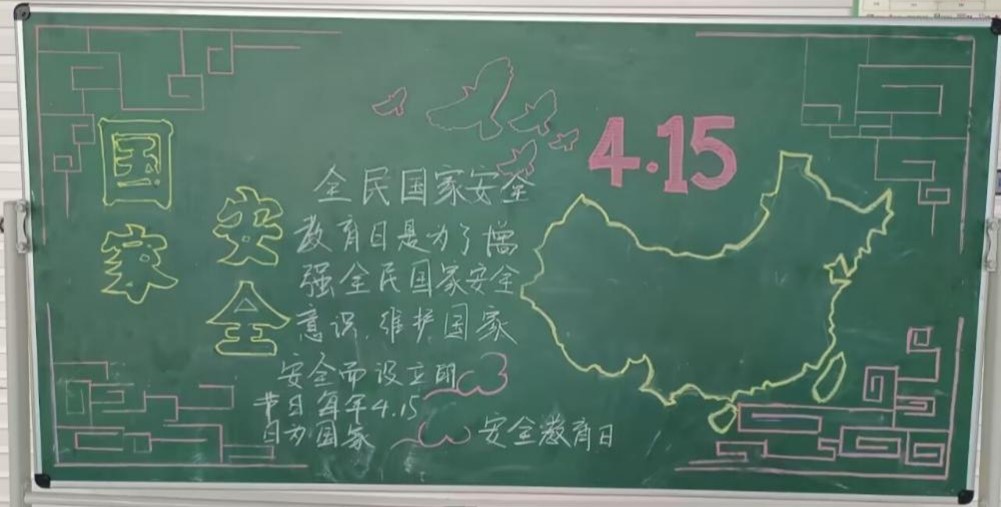 国家
安全
4.15
全民国家安全
教育日是为了增
强全民国家安全
意识,维护国家
安全而设立的
节日每年4.15
日为国家
安全教育日